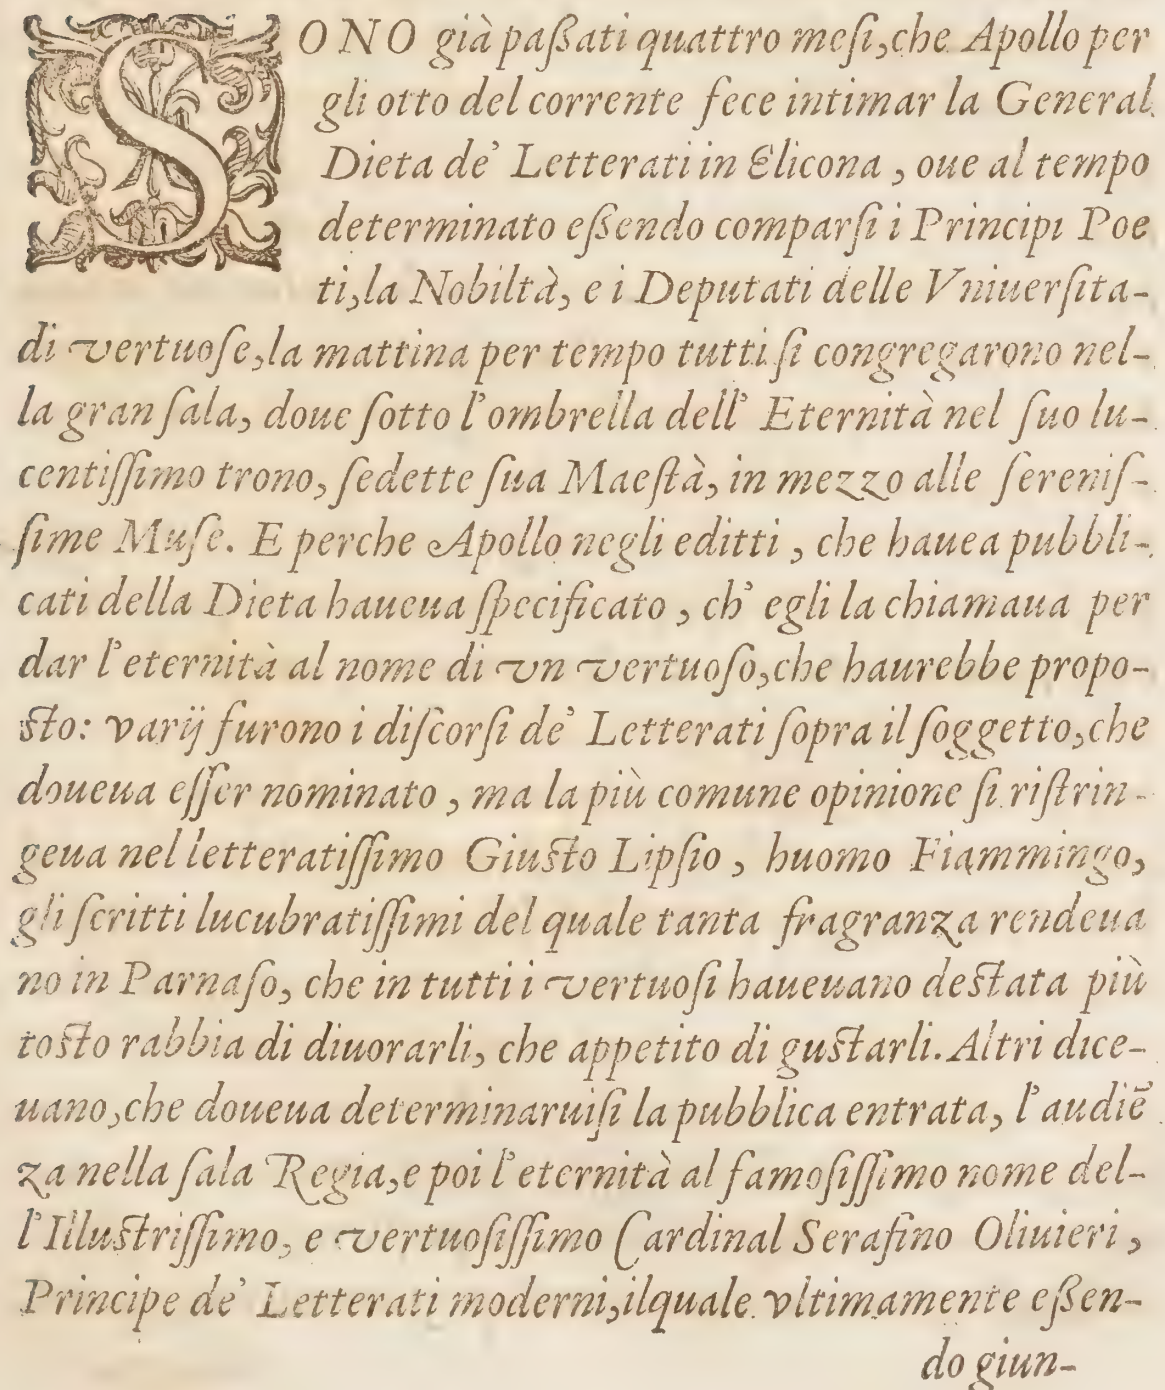 SONO già paßati quattro meſi, che Apollo per
gli otto del corrente fece intimar la General
Dieta de' Letterati in Elicona, oue al tempo
determinato eßendo comparſi i Principi Poe
ti, la Nobiltà, e i Deputati delle Vniuerſita-
di vertuoſe, la mattina per tempo tutti ſi congregarono nel-
la gran ſala, doue ſotto l'ombrella dell' Eternità nel ſuo lu-
centiſſimo trono, ſedette ſua Maeſtà, in mezzo alle ſereniſ-
ſime Muſe. E perche Apollo negli editti, che hauea pubbli-
cati della Dieta haueua ſpecificato, ch' egli la chiamaua per
dar l'eternità al nome di vn vertuoſo, che haurebbe propo-
ſto: varij furono i diſcorſi de' Letterati ſopra il ſoggetto, che
doueua eſſer nominato, ma la più comune opinione ſi riſtrin-
geua nel letteratiſſimo Giuſto Lipſio, huomo Fiammingo,
gli ſcritti lucubratiſſimi del quale tanta fragranza rendeua
no in Parnaſo, che in tutti i vertuoſi haueuano deſtata più
toſto rabbia di diuorarli, che appetito di guſtarli. Altri dice-
uano, che doueua determinaruiſi la pubblica entrata, l'audiē
za nella ſala Regia, e poi l'eternità al famoſiſſimo nome del-
l'Illuſtriſſimo, e vertuoſiſſimo Cardinal Serafino Oliuieri,
Principe de' Letterati moderni, ilquale vltimamente eßen-
do giun-